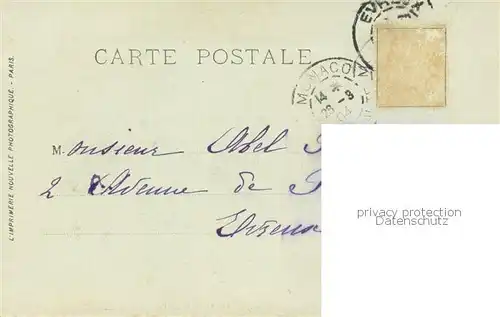 EVREUX
CARTE POSTALE
MONACO
14 *
28 - 8
04
Monsieur Abel
2 Avenue de
Evreux
privacy protection
Datenschutz
L'IMPRIMERIE NOUVELLE PHOTOGRAPHIQUE - PARIS.